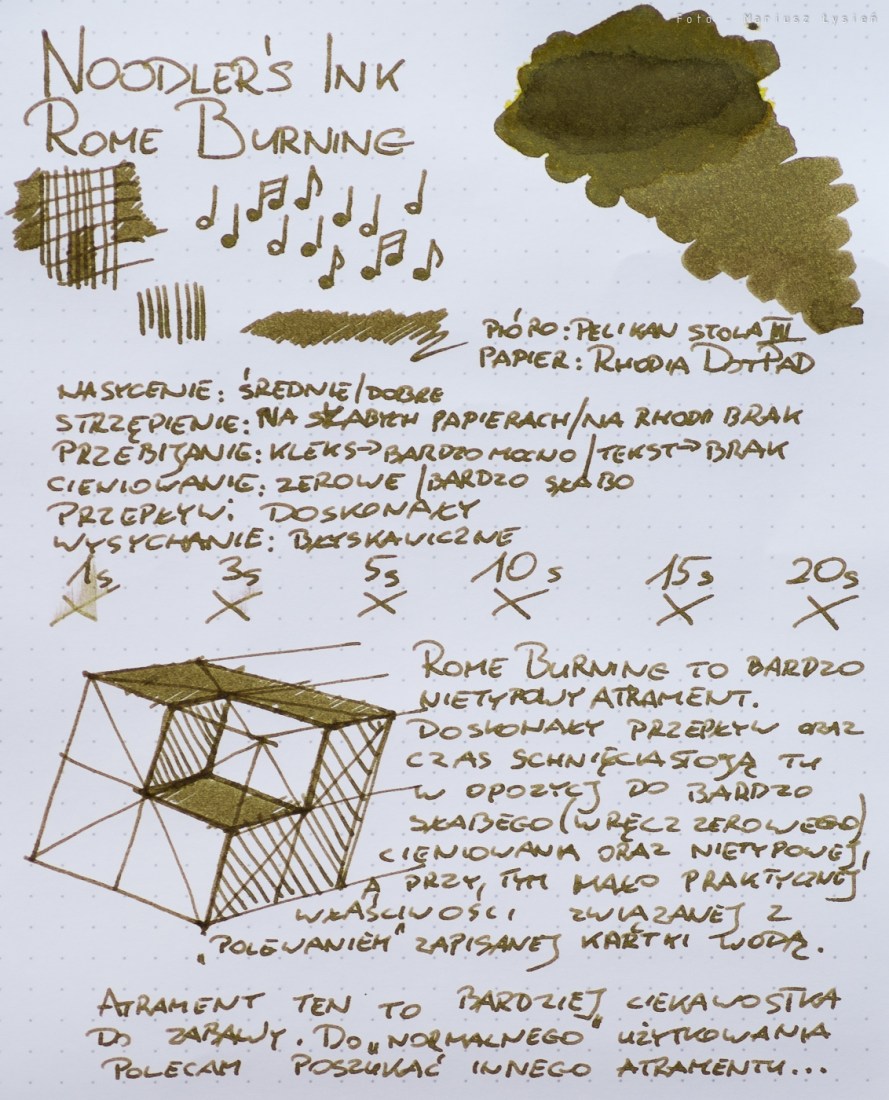 Foto - Mariusz Łysień
NOODLER'S INK
ROME BURNING
PIÓRO: PELIKAN STOLA III
PAPIER: RHODIA DOTPAD
NASYCENIE: ŚREDNIE/DOBRE
STRZĘPIENIE: NA SŁABYCH PAPIERACH/NA RHODII BRAK
PRZEBIJANIE: KLEKS→BARDZO MOCNO/TEKST→BRAK
CIENIOWANIE: ZEROWE/BARDZO SŁABO
PRZEPŁYW: DOSKONAŁY
WYSYCHANIE: BŁYSKAWICZNE
1s 3s 5s 10s 15s 20s
ROME BURNING TO BARDZO
NIETYPOWY ATRAMENT.
DOSKONAŁY PRZEPŁYW ORAZ
CZAS SCHNIĘCIA STOJĄ TU
W OPOZYCJ DO BARDZO
SŁABEGO (WRĘCZ ZEROWEGO)
CIENIOWANIA ORAZ NIETYPOWEJ,
A PRZY TYM MAŁO PRAKTYCZNEJ
WŁAŚCIWOŚCI ZWIĄZANEJ Z
„POLEWANIEM" ZAPISANEJ KARTKI WODĄ.
ATRAMENT TEN TO BARDZIEJ CIEKAWOSTKA
DO ZABAWY. DO „NORMALNEGO" UŻYTKOWANIA
POLECAM POSZUKAĆ INNEGO ATRAMENTU...